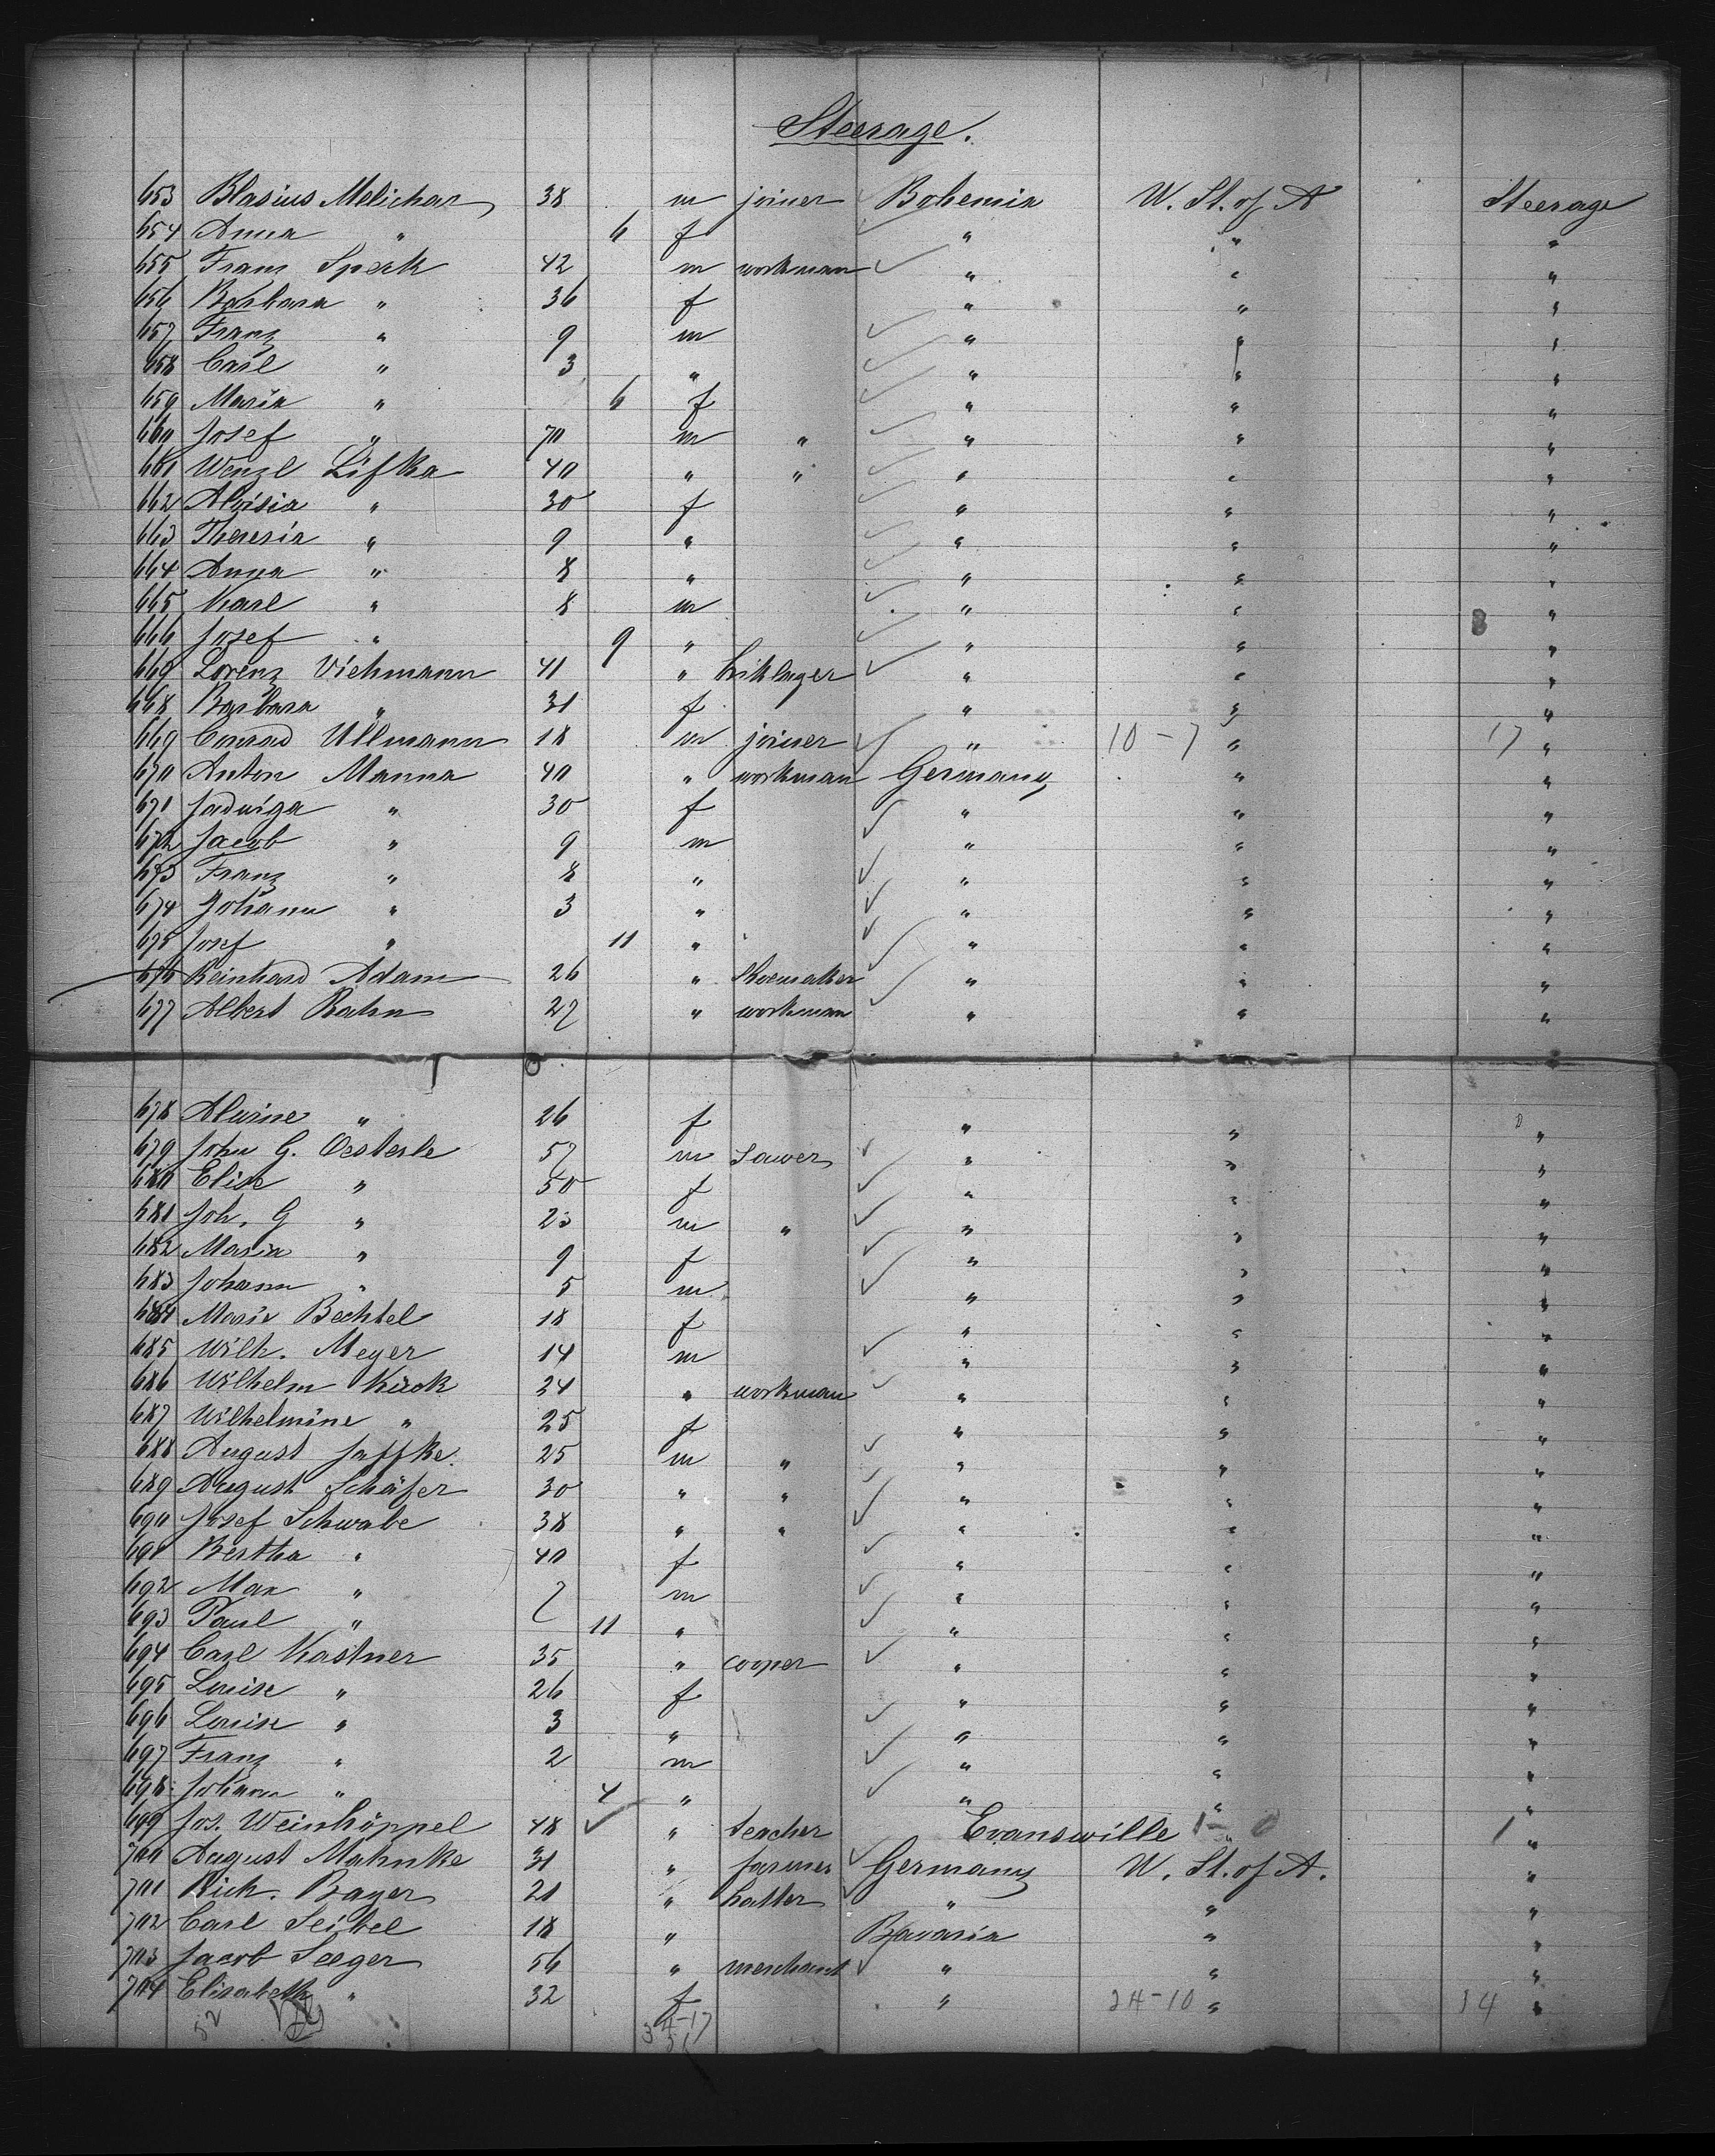 Steerage.
653 Blasius Melichar 38 m joiner Bohemia U. St. of A Steerage
654 Anna " 6 f " " "
655 Franz Sperk 42 m workman " " "
656 Barbara " 36 f " " "
657 Franz " 9 m " " "
658 Carl " 3 " " " "
659 Maria " 6 f " " "
660 Josef " 70 m " " " "
661 Wenzl Lifka 40 " " " " "
662 Aloisia " 30 f " " "
663 Theresia " 9 " " " "
664 Anna " 8 " " " "
665 Karl " 8 m " " "
666 Josef " 9 " " " "
669 Lorenz Viehmann 41 " briklager " " "
668 Barbara " 31 f " " "
669 Conrad Ullmann 18 m joiner " 10-7 " 17 "
670 Anton Manna 40 " workman Germany " "
671 Jadwiga " 30 f " " "
672 Jacob " 9 m " " "
673 Franz " 8 " " " "
674 Johann " 3 " " " "
675 Josef " 11 " " " "
676 Reinhard Adam 26 " Shoemaker " " "
677 Albert Rahn 27 " workman " " "
678 Alwine " 26 f " " "
679 John G. Oesterle 57 m Sawer " " "
680 Elise " 50 f " " "
681 Joh. G " 23 m " " " "
682 Maria " 9 f " " "
683 Johann " 5 m " " "
684 Marie Bechtel 18 f " " "
685 Wilh. Meyer 14 m " " "
686 Wilhelm Kück 24 " workman " " "
687 Wilhelmine " 25 f " " "
688 August Jaffke. 25 m " " " "
689 August Schäfer 30 " " " " "
690 Josef Schwabe 38 " " " " "
691 Bertha " 40 f " " "
692 Max " 7 m " " "
693 Paul " 11 " " " "
694 Carl Kastner 35 " cooper " " "
695 Louise " 26 f " " "
696 Louise " 3 " " " "
697 Franz " 2 m " " "
698 Johann " 4 " " " "
699 Jos. Weinhöppel 48 " teacher Evanswille 1-0 " 1 "
700 August Mahnke 31 " farmer Germany U. St. of A. "
701 Rich. Bayer 21 " hatter " " "
702 Carl Seibel 18 " Bavaria " "
703 Jacob Seeger 56 " merchant " " "
704 Elisabeth " 32 f " 24-10 " 34 "
52 34-17